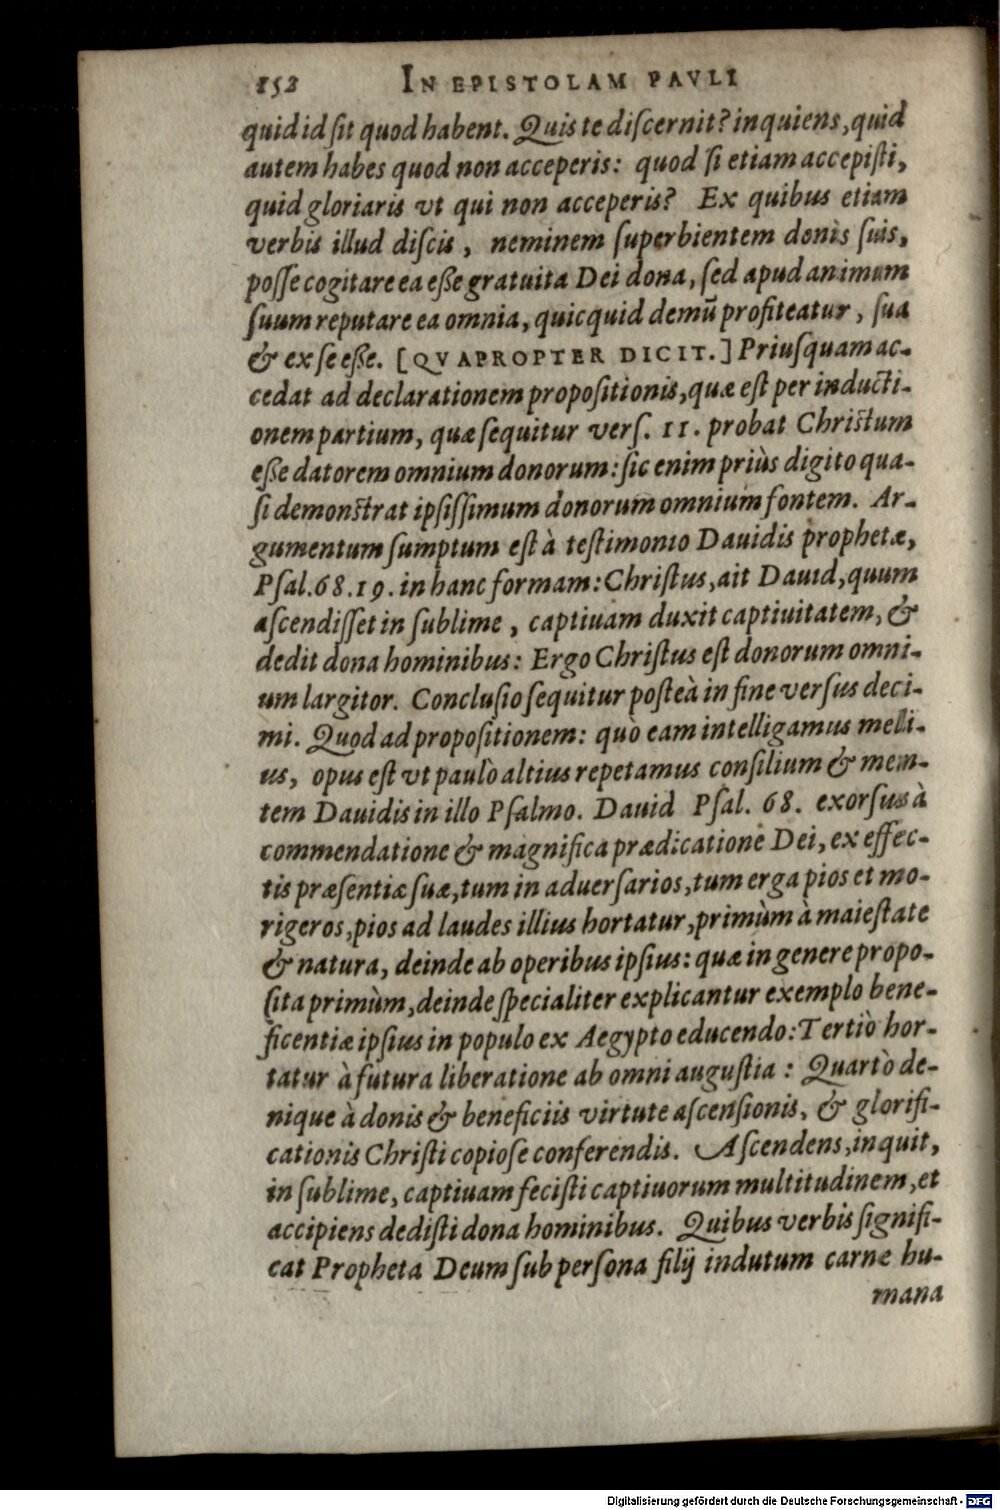 152 IN EPISTOLAM PAVLI
quid id ſit quod habent. Quis te diſcernit? inquiens, quid
autem habes quod non acceperis: quod ſi etiam accepiſti,
quid gloriaris vt qui non acceperis? Ex quibus etiam
verbis illud diſcis, neminem ſuperbientem donis ſuis,
poſſe cogitare ea eße gratuita Dei dona, ſed apud animum
ſuum reputare ea omnia, quicquid demū profiteatur, ſua
& ex ſe eße. [QVAPROPTER DICIT.] Priuſquam ac-
cedat ad declarationem propoſitionis, quæ eſt per inducti-
onem partium, quæ ſequitur verſ. 11. probat Chriſtum
eße datorem omnium donorum: ſic enim priùs digito qua-
ſi demonſtrat ipſiſſimum donorum omnium fontem. Ar-
gumentum ſumptum eſt à teſtimonio Dauidis prophetæ,
Pſal. 68. 19. in hanc formam: Chriſtus, ait Dauid, quum
aſcendiſſet in ſublime, captiuam duxit captiuitatem, &
dedit dona hominibus: Ergo Chriſtus eſt donorum omni-
um largitor. Concluſio ſequitur poſteà in fine verſus deci-
mi. Quod ad propoſitionem: quò eam intelligamus meli-
us, opus eſt vt paulò altius repetamus conſilium & men-
tem Dauidis in illo Pſalmo. Dauid Pſal. 68. exorſus à
commendatione & magnifica prædicatione Dei, ex effec-
tis præſentiæ ſuæ, tum in aduerſarios, tum erga pios et mo-
rigeros, pios ad laudes illius hortatur, primùm à maieſtate
& natura, deinde ab operibus ipſius: quæ in genere propo-
ſita primùm, deinde ſpecialiter explicantur exemplo bene-
ficentiæ ipſius in populo ex Aegypto educendo: Tertiò hor-
tatur à futura liberatione ab omni auguſtia: Quartò de-
nique à donis & beneficiis virtute aſcenſionis, & glorifi-
cationis Chriſti copioſe conferendis. Aſcendens, inquit,
in ſublime, captiuam feciſti captiuorum multitudinem, et
accipiens dediſti dona hominibus. Quibus verbis ſignifi-
cat Propheta Deum ſub perſona filij indutum carne hu-
mana
Digitalisierung gefördert durch die Deutsche Forschungsgemeinschaft - DFG